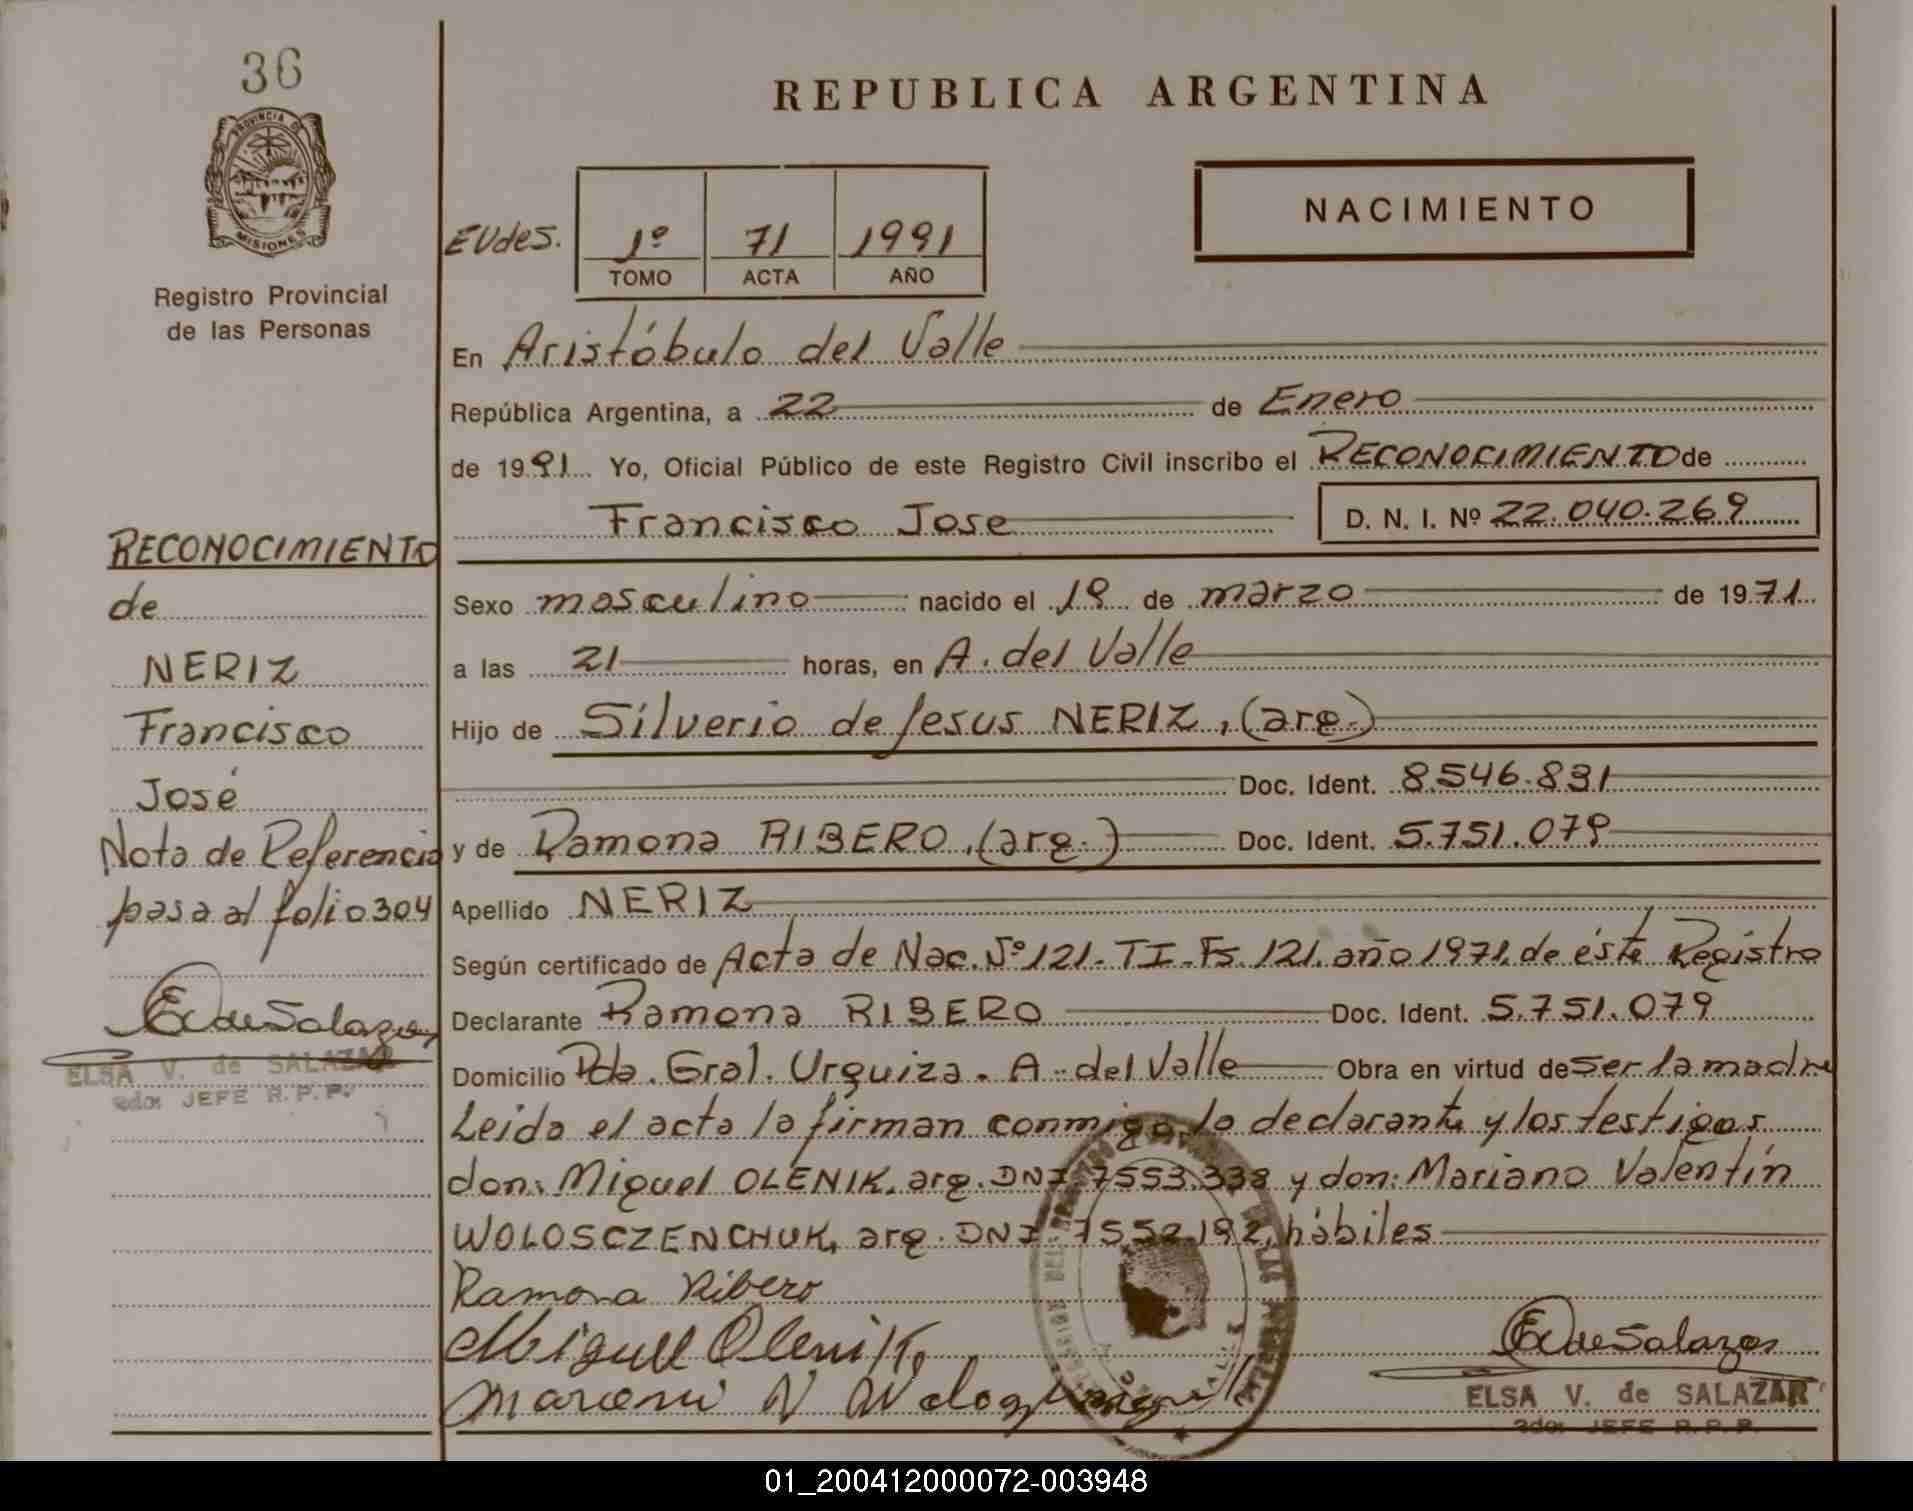 36
PROVINCIA DE
MISIONES
Registro Provincial
de las Personas
RECONOCIMIENTO
de
NERIZ
Francisco
José
Nota de Referencia
pasa al folio 304
E V de Salazar
ELSA V. de SALAZAR
2do: JEFE R.P.P.
REPUBLICA ARGENTINA
NACIMIENTO
EVdeS. 1º 71 1991
TOMO ACTA AÑO
En Aristóbulo del Valle
República Argentina, a 22 de Enero
de 1991 Yo, Oficial Público de este Registro Civil inscribo el RECONOCIMIENTO de
Francisco Jose D. N. I. Nº 22.040.269
Sexo masculino nacido el 19 de marzo de 1971
a las 21 horas, en A. del Valle
Hijo de Silverio de Jesus NERIZ, (arg.)
Doc. Ident. 8.546.831
y de Ramona RIBERO, (arg.) Doc. Ident. 5.751.079
Apellido NERIZ
Según certificado de Acta de Nac. Nº 121. TI. Fs. 121. año 1971, de éste Registro
Declarante Ramona RIBERO Doc. Ident. 5.751.079
Domicilio Pda. Gral. Urquiza. A. del Valle Obra en virtud de ser la madre
Leida el acta la firman conmigo, la declarante y los testigos
don: Miguel OLENIK, arg. DNI 7553.338 y don: Mariano Valentín
WOLOSCZENCHUK, arg. DNI 7552.192, hábiles
Ramona Ribero
Miguel Olenik
E V de Salazar
ELSA V. de SALAZAR
2do: JEFE R.P.P.
01_200412000072-003948